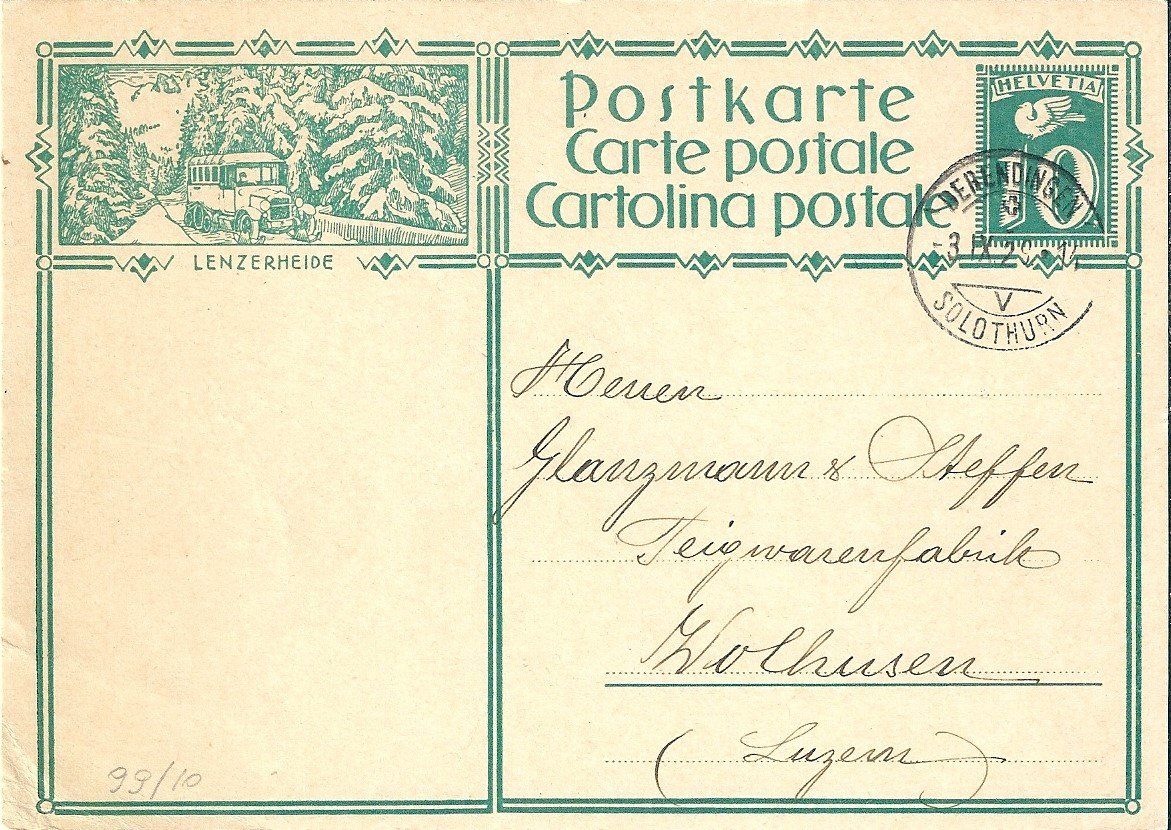 LENZERHEIDE
Postkarte
Carte postale
Cartolina postale
HELVETIA
10
DERENDINGEN
-3.IX.2
V
SOLOTHURN
Herren
Glanzmann & Steffen
Teigwarenfabrik
Wolhusen
(Luzern)
99/10